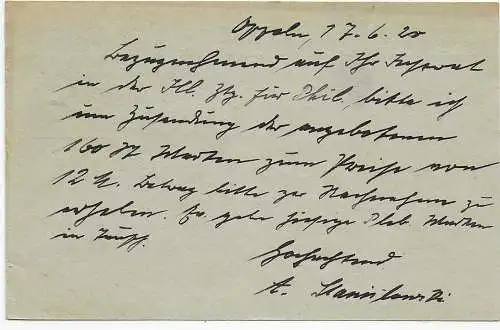 Oppeln, 17.6.20
Bezugnehmend auf Ihr Inserat
in der Ill. Ztg. für Phil. bitte ich
um Zusendung der angebotenen
160 St Marken zum Preise von
12 M. Betrag bitte per Nachnahme zu
erheben. Ev. gebe hiesige Pleb. Marken
in Tausch.
Hochachtend
A. Stanilowski